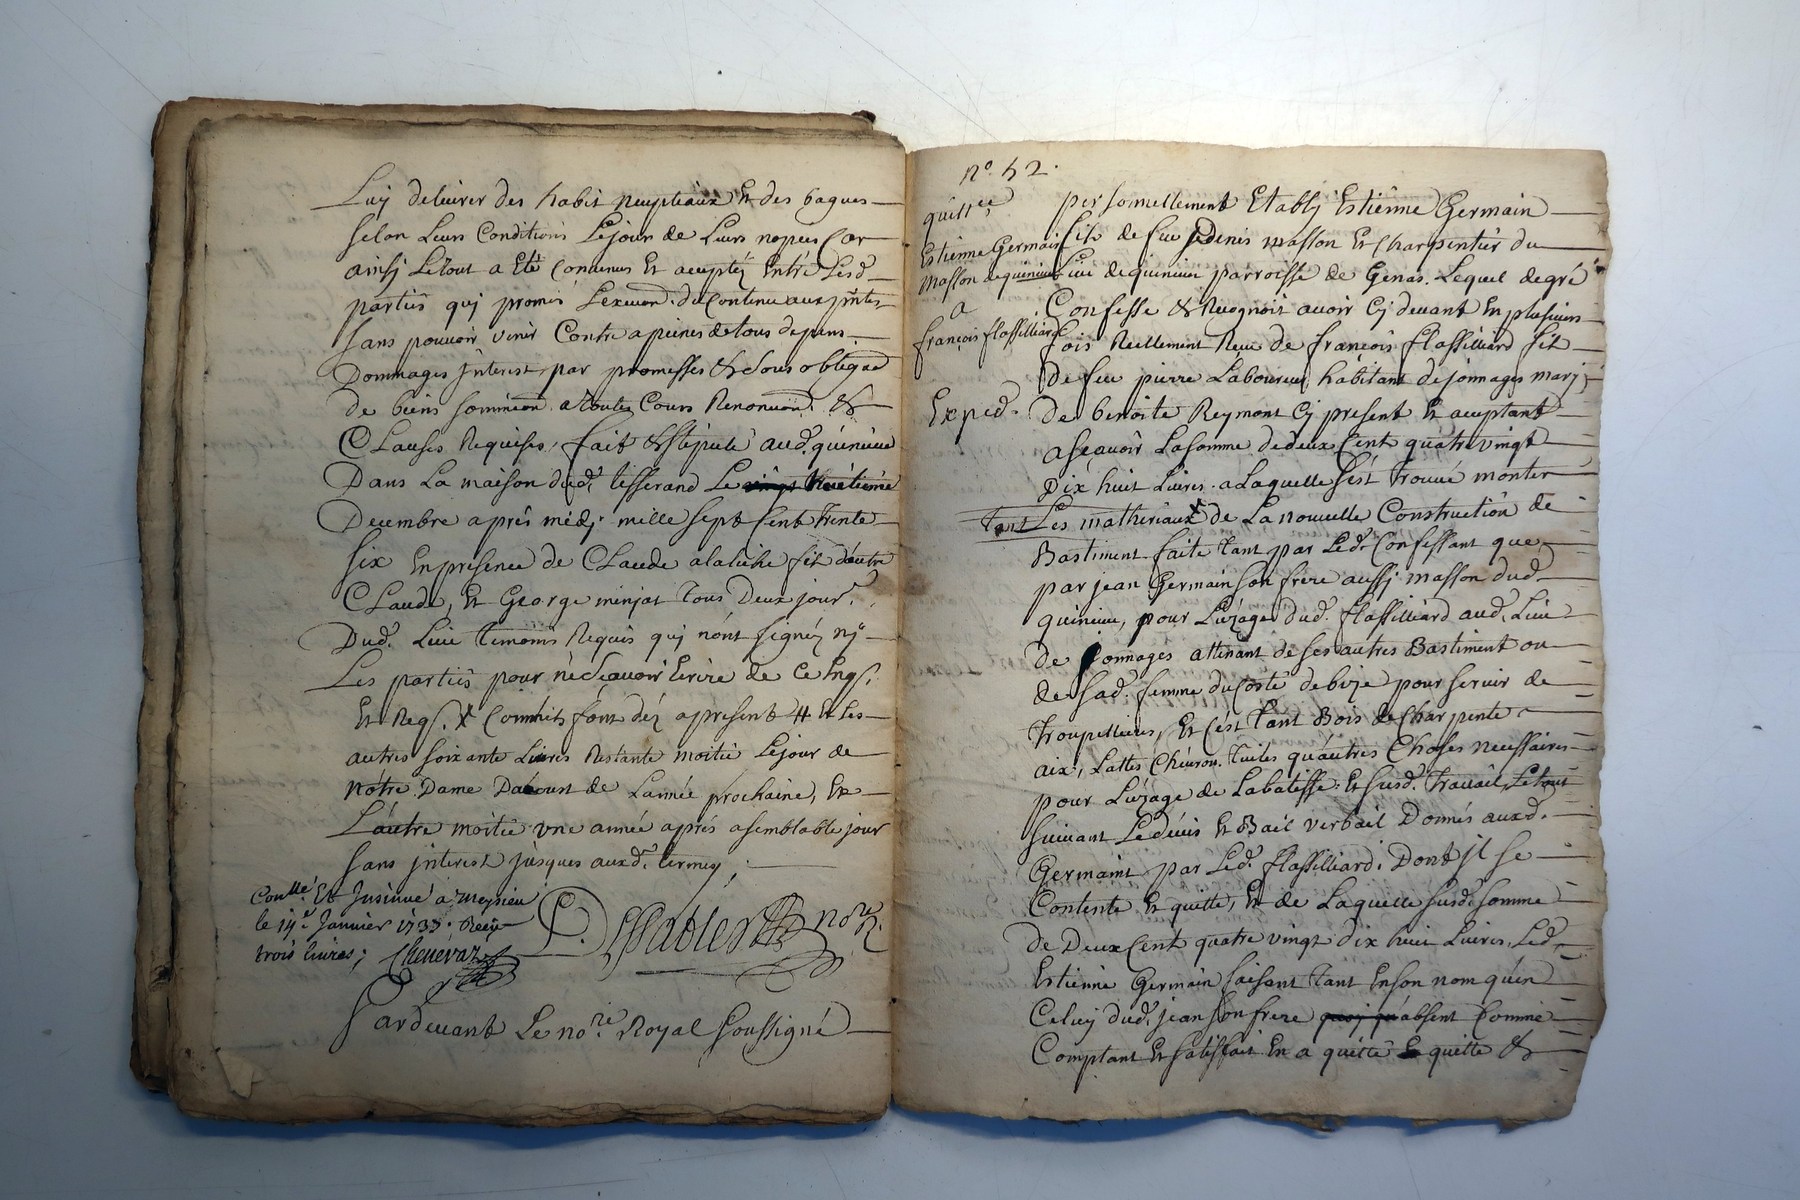 Luy delivrer des habit neuptiaux Et des bagues
selon Leurs Conditions Lejour de Leurs nopces Car
ainsy Letout a Eté Convenus Et accepté Entre Lesd.
parties quj promis Lexecuon. du Contenu aux pntes
sans pouvoir venir Contre a peines de tous depens
Dommages jnterest par promesses & sous obligaon
de biens soumission a toutes Cours Renonciaon. &
Clauses Requises, fait & stipulé aud. quinieue
Dans La maison dud. tisserand Le
Decembre aprés midj. mille sept Cent trente
six En presence de Claude fils d'autre
Claude, Et George minjat tous Deux jour.
Dud. Lieu temoins Requis quj n'ont signéz nj
Les parties pour ne scavoir Ecrire de Ce Enqs.
Et Reqs. X déz a present # Et Les
autres soixante Livres Restante moitie Lejour de
nôtre Dame Daoust de Lannée prochaine, Et
L'autre moitie une année aprés asemblable jour
sans jnterest jusques auxd. termes,
Conllé. Et Insinué a Meysieu
le 14e Janvier 1737. Reçu
trois livres; Chenévaz
nore R.
Pardevant Le nore. Royal soussigné
n° 52.
quittce
Estienne Germain
masson de quinieue
a
françois flassilliard
Exped.
personnellement Etablj Estienne Germain
fils de feu denis masson Et Charpentier du
Lieu de quinieue parroisse de Genas. Lequel de gré
Confesse & Recognoit avoir Cj devant En plusieurs
fois Reellement Receu de francois flassilliard fils
de feu pierre Laboureur habitant de jonnages marj
de benoite Reymont Cj present Et acceptant
ascavoir La somme de deux Cent quatre vingt
Dix huit Livres. a Laquelle s'est trouvé monter
tant Les matheriaux de La nouvelle Construction de
Bastiment faite tant par Led. Confessant que
par jean Germain son frere aussj masson dud.
quinieue, pour L'uzage dud. flassilliard aud. Lieu
De jonnages attenant de ses autres Bastiment ou
de sad. femme du Costé de bize pour servir de
Et c'est tant Bois de Charpente
aix, Lattes Chevron. tuiles qu'autres Choses necessaires
pour L'uzage de La batisse. Et susd. travail, Le tout
suivant Le devis Et Bail verbail Donnés auxd.
Germaint par Led. flassilliard. Dont jl se
Contente Et quitte, Et de Laquelle susd. somme
de Deux Cent quatre vingt dix huit Livres, Led.
Estienne Germain faisant tant En son nom qu'en
Celuy dud. jean son frere absent Comme
Comptant Et satisfait En a quitté quitte &